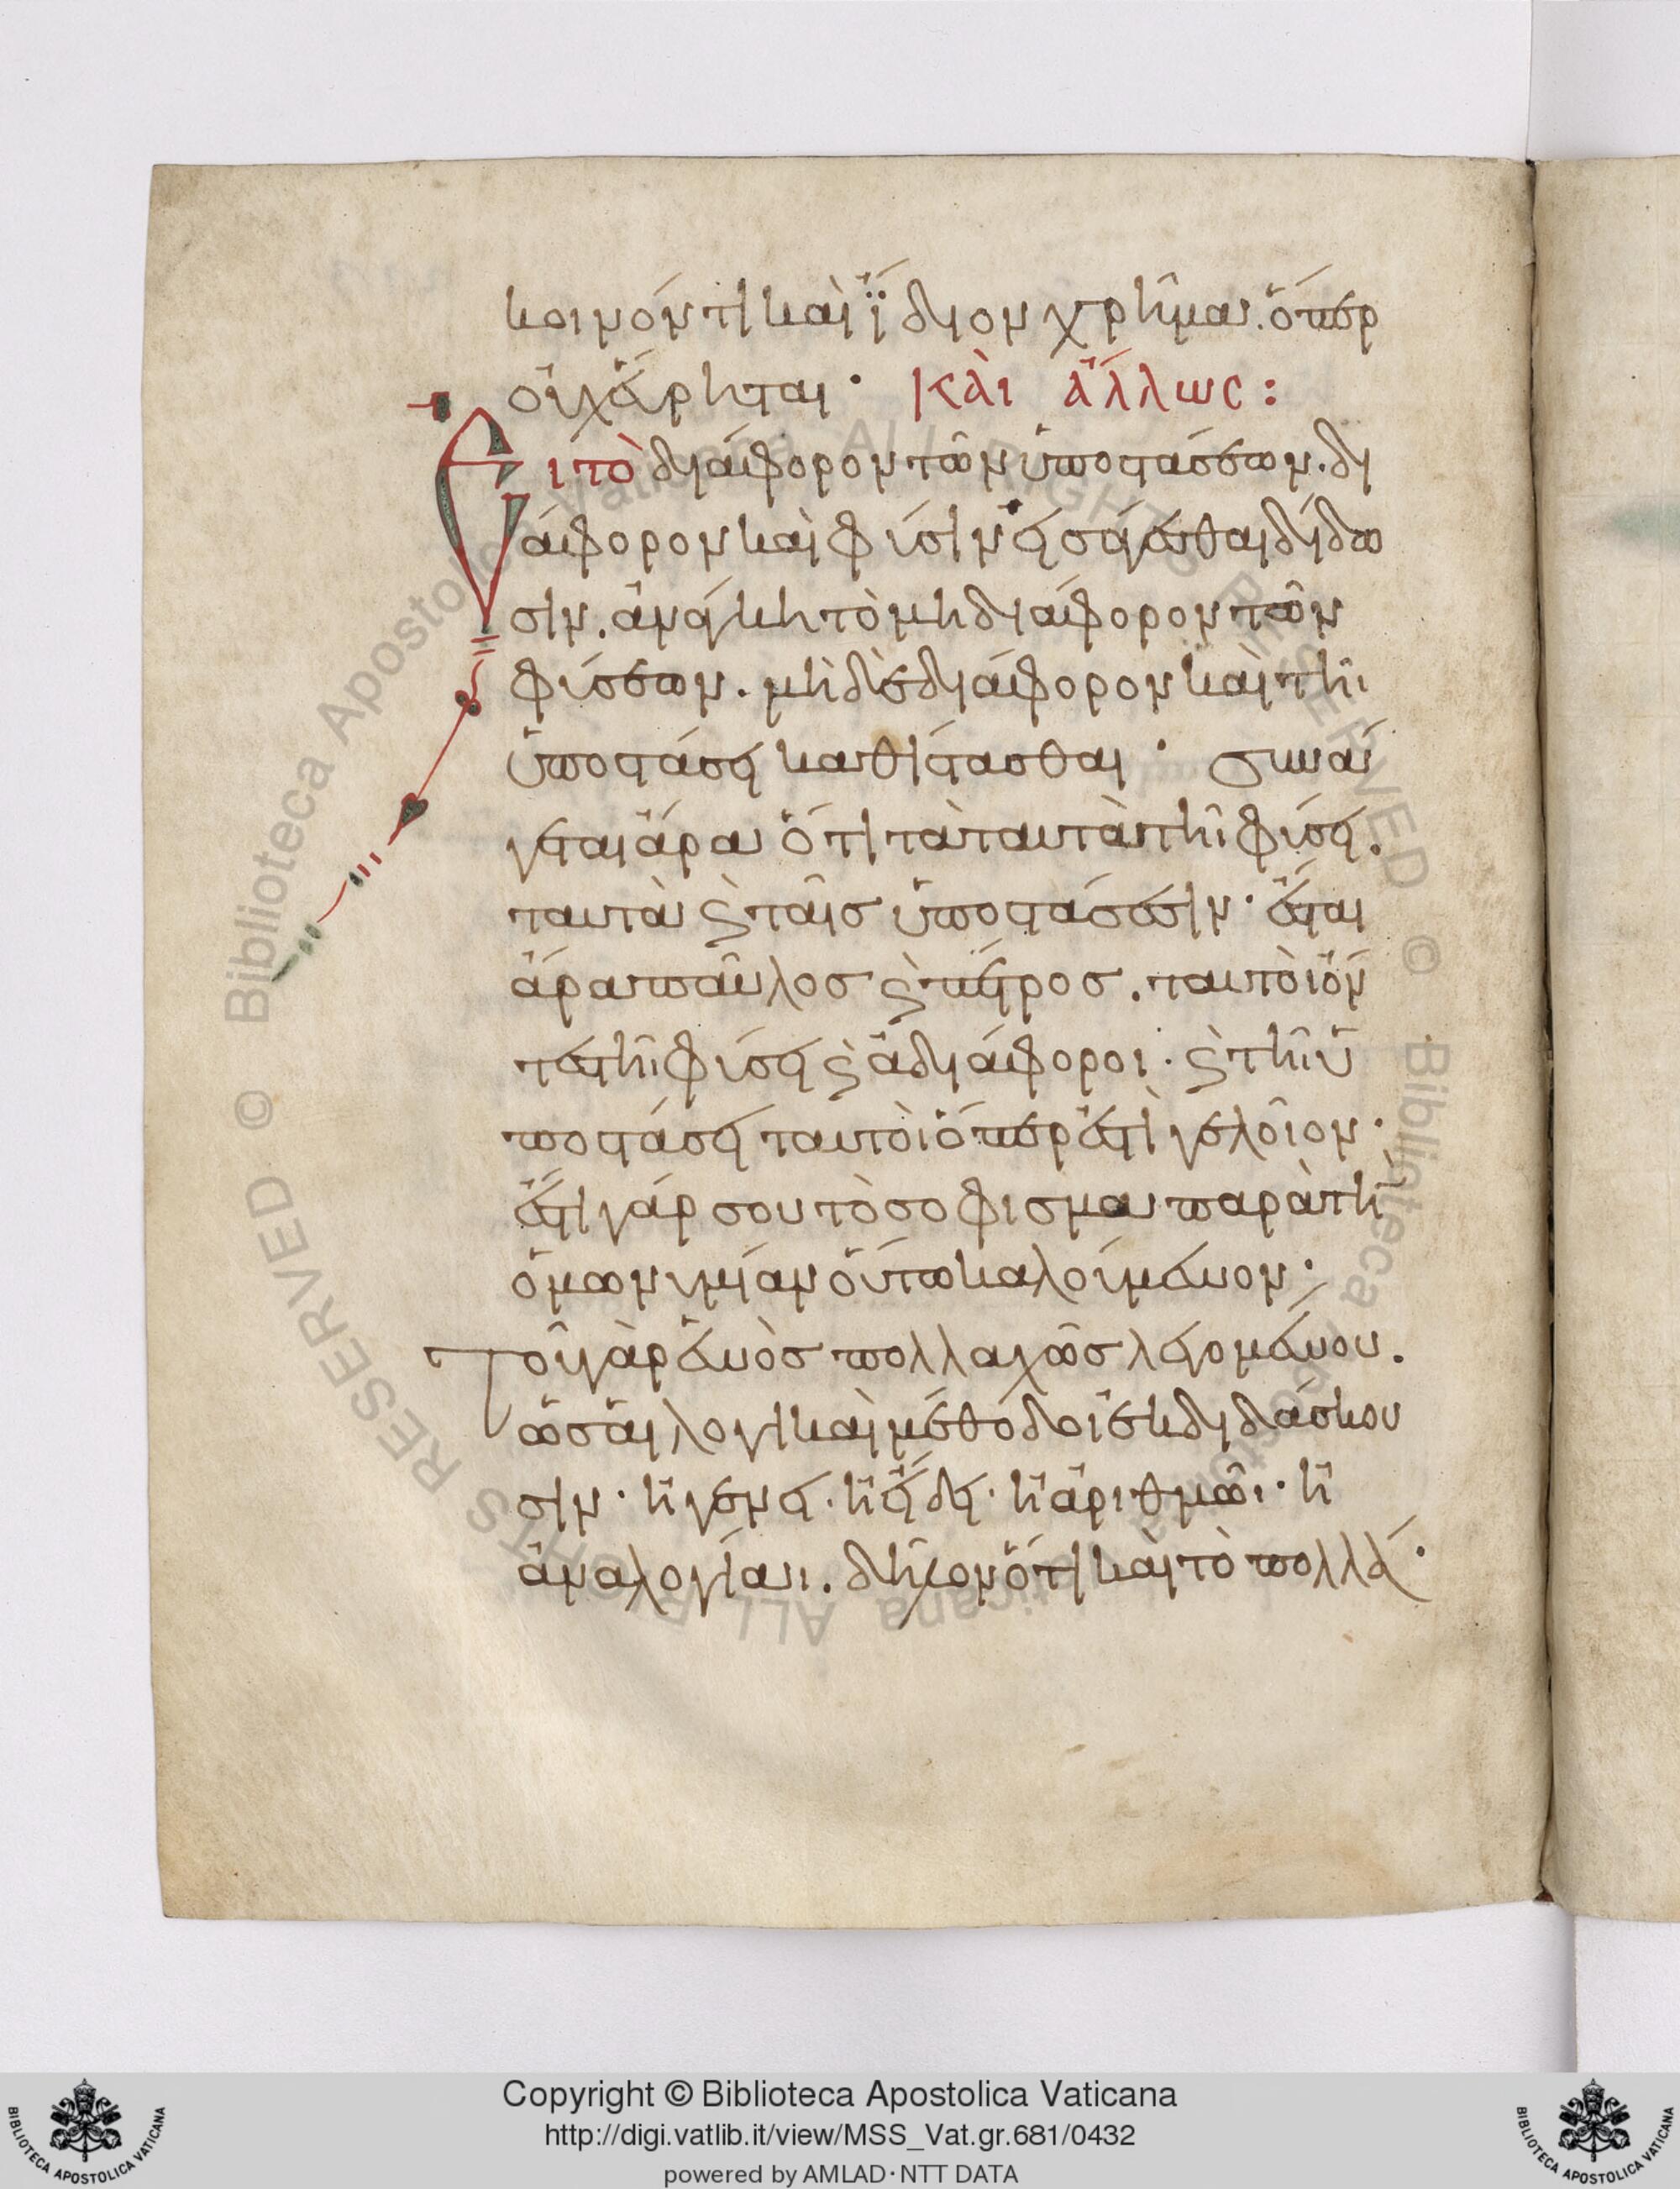 κοινόν τι καὶ ἴδιον χρῆμα. ὅπερ
οὐχ εὕρηται · καὶ ἄλλως :
Ει τὸ διάφορον τῶν ὑποστάσεων. δι
άφορον καὶ φύσιν εἰσάγεσθαι δίδω
σιν. ἀνάγκη τὸ μὴ διάφορον τῶν
φύσεων. μηδὲ διάφορον καὶ τῆι
ὑποστάσει καθίστασθαι · συνά
γεται ἄρα ὅτι τὰ ταυτὰ τῆι φύσει.
ταυτὰ ϛ ταῖς ὑποστάσεσιν · ἔσται
ἄρα παῦλος ϛ πέτρος. ταυτὸι ὄν
τες τῆι φύσει ϛ ἀδιάφοροι · ϛ τῆι ὑ
ποστάσει ταυτὸι ὅπερ ἐστὶ γελοῖον ·
ἔστι γάρ σου τὸ σόφισμα παρὰ τὴν
ὁμωνυμίαν οὕτω καλούμενον ·
Τοῦ γὰρ ἑνὸς πολλαχῶς λεγομένου.
ὡς αἱ λογικαὶ μέθοδοι ἐκδιδάσκου
σιν · ἢ γένει · ἢ εἴδει · ἢ ἀριθμῶι · ἢ
ἀναλογίαι. δῆλον ὅτι καὶ τὸ πολλά ·
Copyright © Biblioteca Apostolica Vaticana
http://digi.vatlib.it/view/MSS_Vat.gr.681/0432
powered by AMLAD · NTT DATA
BIBLIOTECA APOSTOLICA VATICANA
BIBLIOTECA APOSTOLICA VATICANA
© Biblioteca Apostolica Vaticana ALL RIGHTS RESERVED © Biblioteca Apostolica Vaticana ALL RIGHTS RESERVED